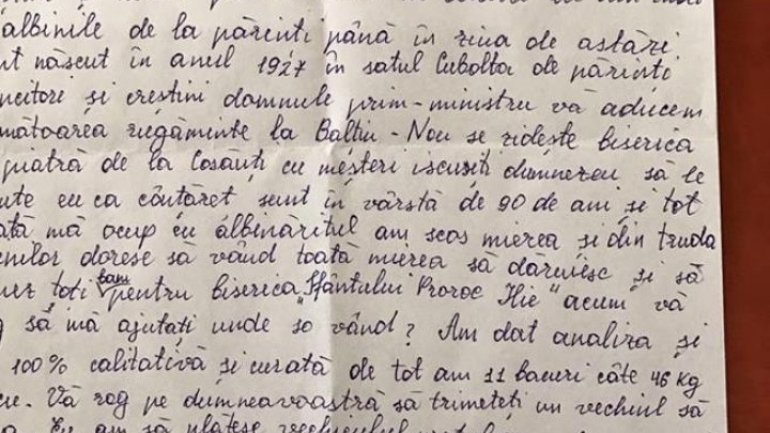 albinile de la părinti până în ziua de astăzi
născut în anul 1927 în satul Cubolta de părinti
si crestini domnule prim-ministru vă aducem
rugăminte la Baltiu-Nou se rideste biserica
piatră de la Cosăuti cu mesteri iscusiti dumnezeu să le
eu ca cântăret sunt în vârstă de 90 de ani si tot
mă ocup cu albinăritul am scos mierea si din truda
doresc să vând toată mierea să dăruiesc si să
toti bani pentru biserica "Sfântului Proroc Ilie" acum vă
să mă ajutati unde so vând? Am dat analiza si
100% calitativă si curată de tot am 11 bacuri câte 46 kg
Vă rog pe dumneavoastră să trimeteti un vechiul să
Eu am să plătesc